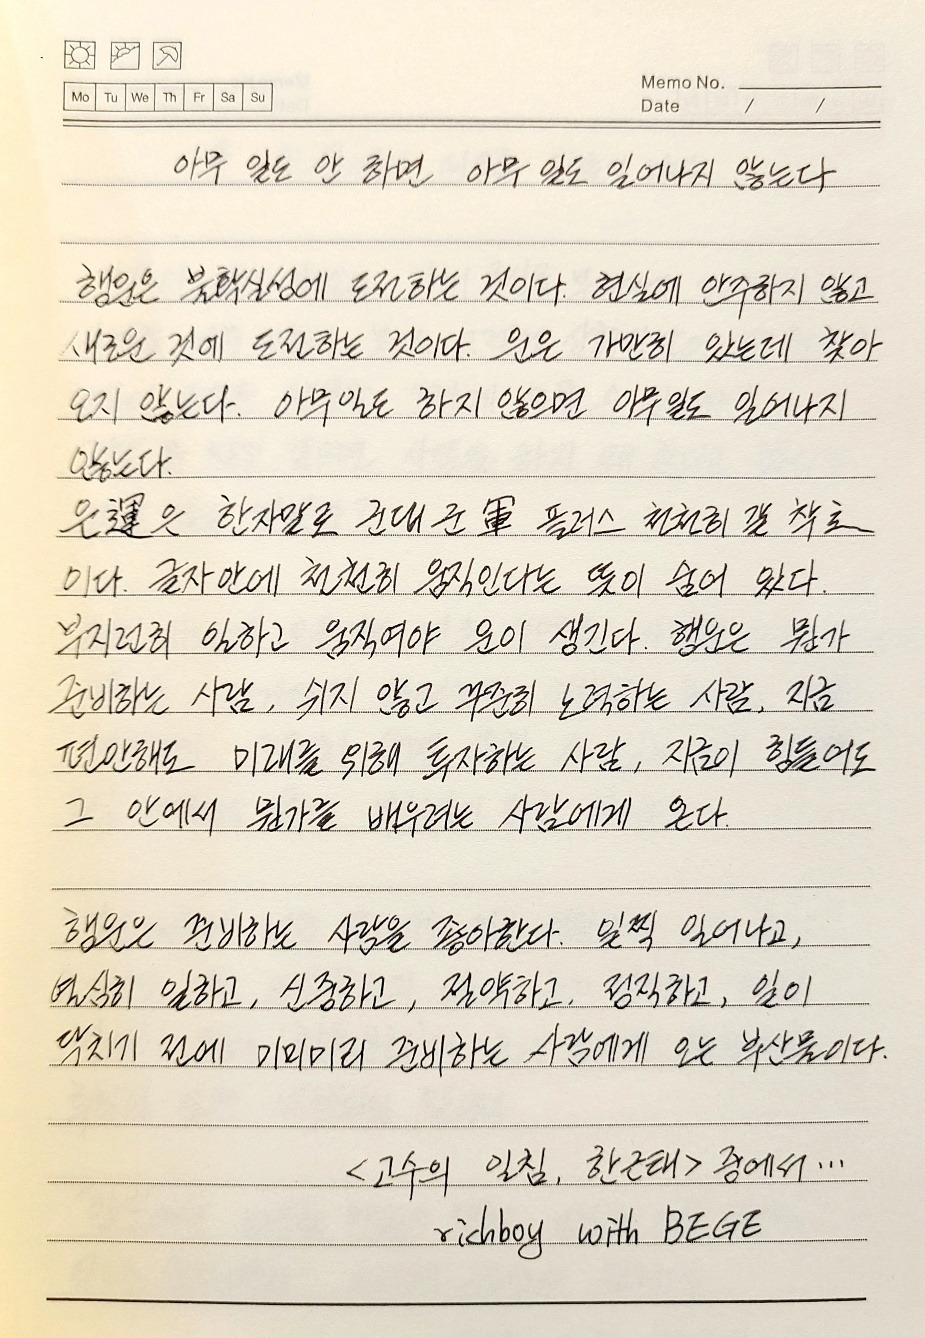 Mo Tu We Th Fr Sa Su
Memo No.
Date / /
아무 일도 안 하면 아무 일도 일어나지 않는다
행운은 불확실성에 도전하는 것이다. 현실에 안주하지 않고
새로운 것에 도전하는 것이다. 운은 가만히 있는데 찾아
오지 않는다. 아무일도 하지 않으면 아무일도 일어나지
않는다.
운運은 한자말로 군대 군軍 플러스 천천히 갈 착로
이다. 글자안에 천천히 움직인다는 뜻이 숨어 있다.
부지런히 일하고 움직여야 운이 생긴다. 행운은 뭔가
준비하는 사람, 쉬지 않고 꾸준히 노력하는 사람, 지금
편안해도 미래를 위해 투자하는 사람, 지금이 힘들어도
그 안에서 뭔가를 배우려는 사람에게 온다.
행운은 준비하는 사람을 좋아한다. 일찍 일어나고,
열심히 일하고, 신중하고, 절약하고, 정직하고, 일이
닥치기 전에 미리미리 준비하는 사람에게 오는 부산물이다.
<고수의 일침, 한근태> 중에서…
richboy with BEGE